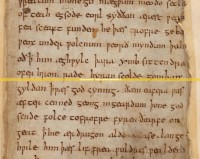 þreatum monegū mægþum meodo setla
of teah egsode eorl syððan ærest ƿearð
feasceaft funden he þæs frofre gebad
ƿeox under ƿolcnum ƿeorð myndum þah
oð ꝥ him æghƿylc þara ymb sittendra
ofer hron rade hyran scolde gomban
gyldan ꝥ ƿæs god cyning. ðæm eafera ƿæs
æfter cenned geong in geardum þone god
sende folce to frofre fyren ðearfe on
geat ꝥ hie ær drugon aldor lease lange
hƿile him þæs lif frea ƿuldres